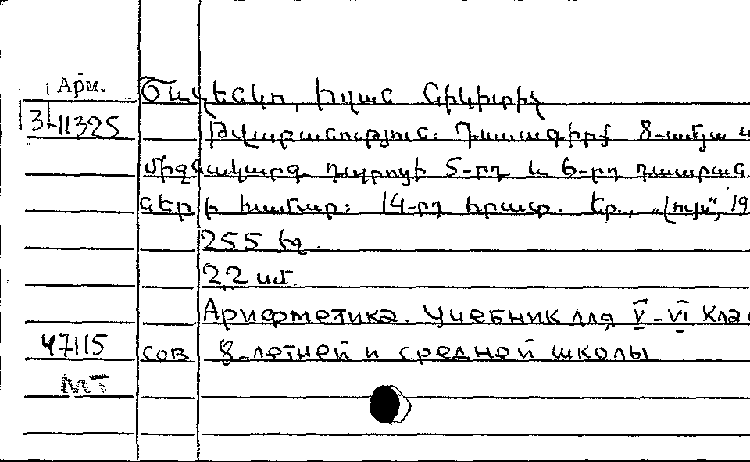 Арм.
3-11325
Շևչենկո, Իվան Նիկիտիչ
Թվաբանություն: Դասագիրք 8-ամյա և
միջնակարգ դպրոցի 5-րդ և 6-րդ դասարան
ների համար: 14-րդ հրատ. Եր., «Լույս», 19
255 էջ.
22 սմ.
Арифметика. Учебник для V-VI кла
47115 сов 8-летней и средней школы
МТ